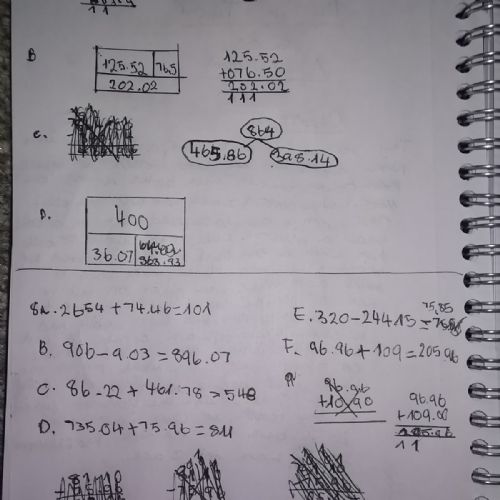 11
B
125.52 76.5
202.02
125.52
+076.50
202.02
111
C.
864
465.86 398.14
D.
400
36.07 363.93
8A. 26.54 + 74.46 = 101
B. 906 - 9.03 = 896.07
C. 86.22 + 461.78 = 548
D. 735.04 + 75.96 = 811
E. 320 - 244.15 = 75.85
F. 96.96 + 109 = 205.96
96.96
+10.90
96.96
+109.00
205.96
11